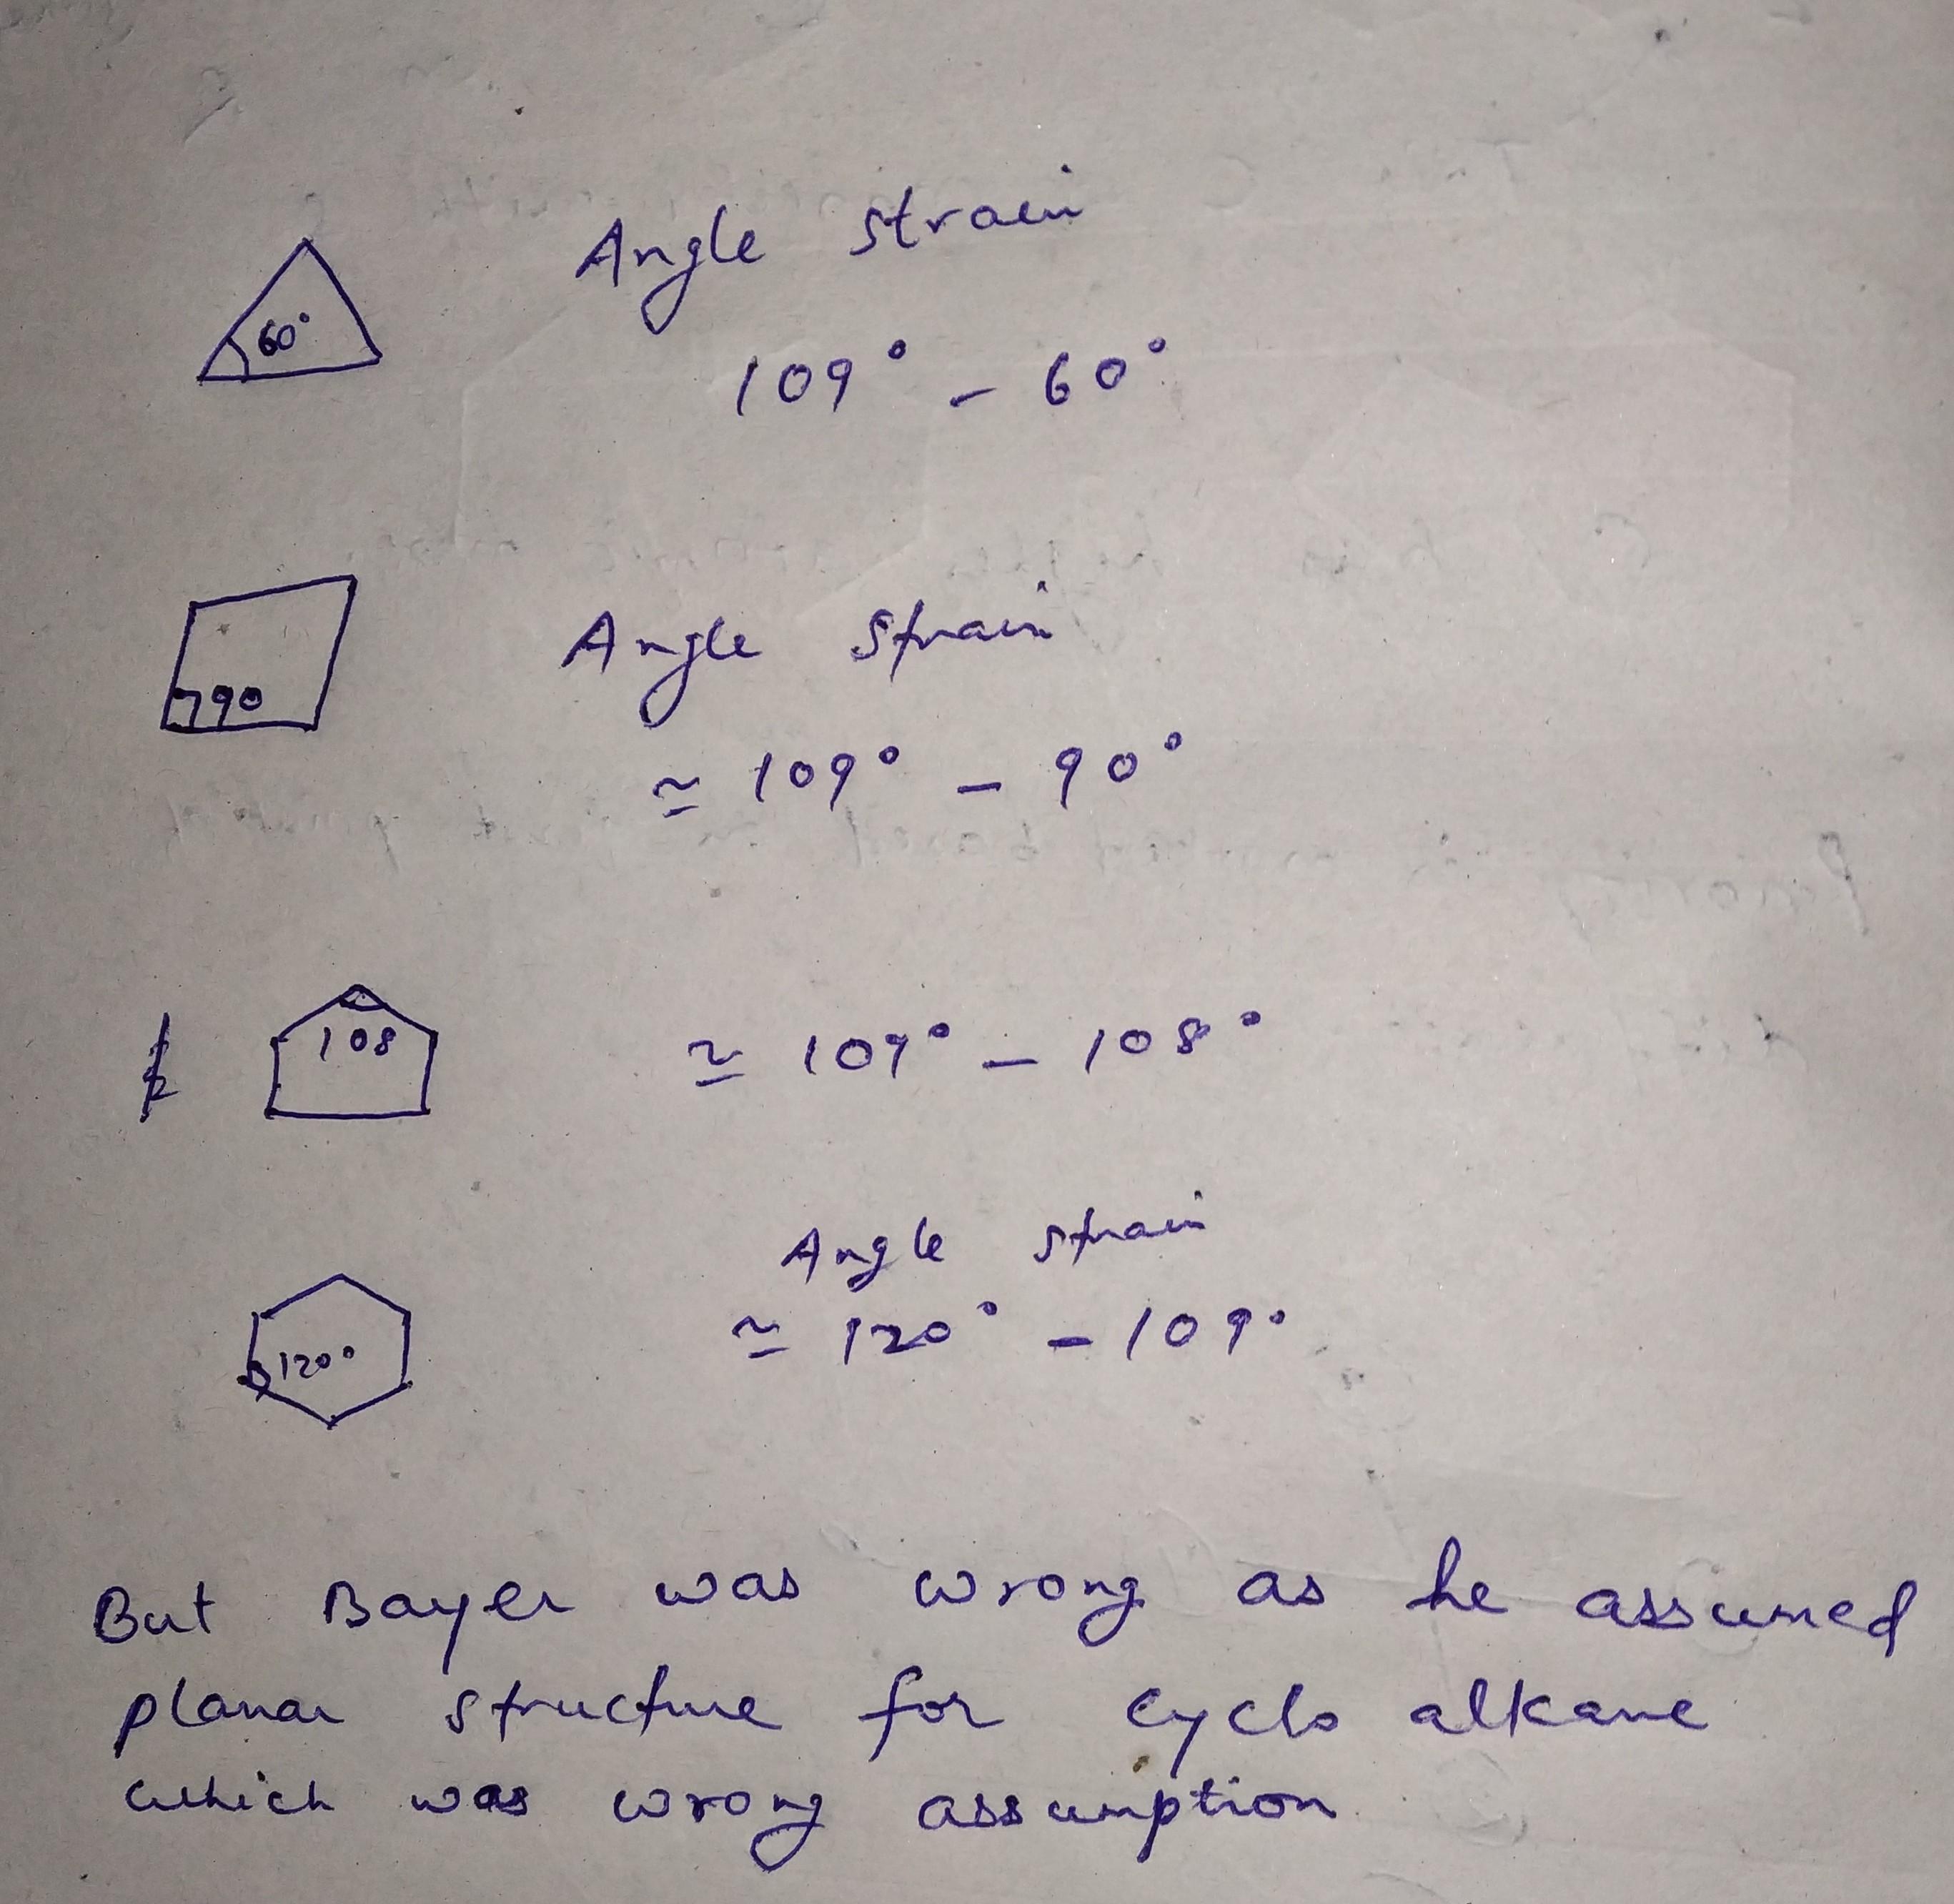 Angle strain
60°
109° - 60°
Angle strain
90
≃ 109° - 90°
108
≃ 109° - 108°
Angle strain
120°
≃ 120° - 109°
But Bayer was wrong as he assumed
planar structure for cyclo alkane
which was wrong assumption